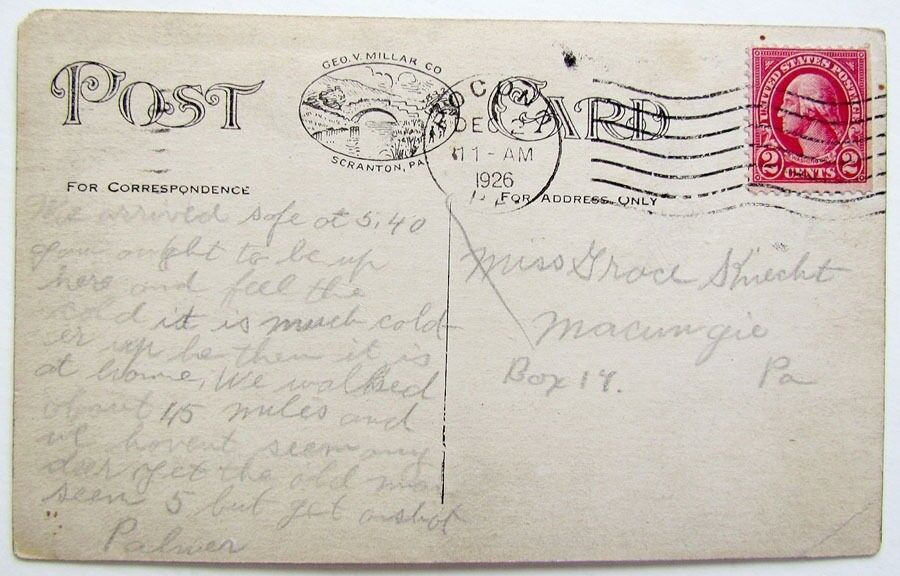 POST CARD
GEO. V. MILLAR CO
SCRANTON, PA.
POCONO
DEC
11-AM
1926
UNITED STATES POSTAGE
2 CENTS 2
FOR CORRESPONDENCE
FOR ADDRESS ONLY
We arrived safe at 5,40
you ought to be up
here and feel the
cold it is much cold
er up he then it is
at home, We walked
about 15 miles and
we havent seem any
deer yet the old man
seem 5 but get a shot
Palmer
Miss Grace Knecht
Macungie
Box 14. Pa